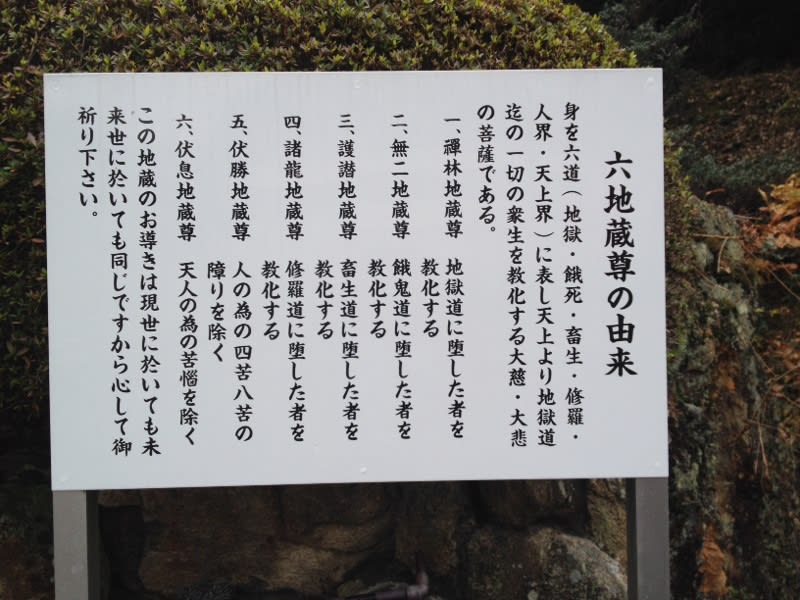 六地蔵尊の由来
身を六道（地獄・餓死・畜生・修羅・
人界・天上界）に表し天上より地獄道
迄の一切の衆生を教化する大慈・大悲
の菩薩である。
一、禪林地蔵尊　地獄道に堕した者を
教化する
二、無二地蔵尊　餓鬼道に堕した者を
教化する
三、護讃地蔵尊　畜生道に堕した者を
教化する
四、諸龍地蔵尊　修羅道に堕した者を
教化する
五、伏勝地蔵尊　人の為の四苦八苦の
障りを除く
六、伏息地蔵尊　天人の為の苦惱を除く
この地蔵のお導きは現世に於いても未
来世に於いても同じですから心して御
祈り下さい。